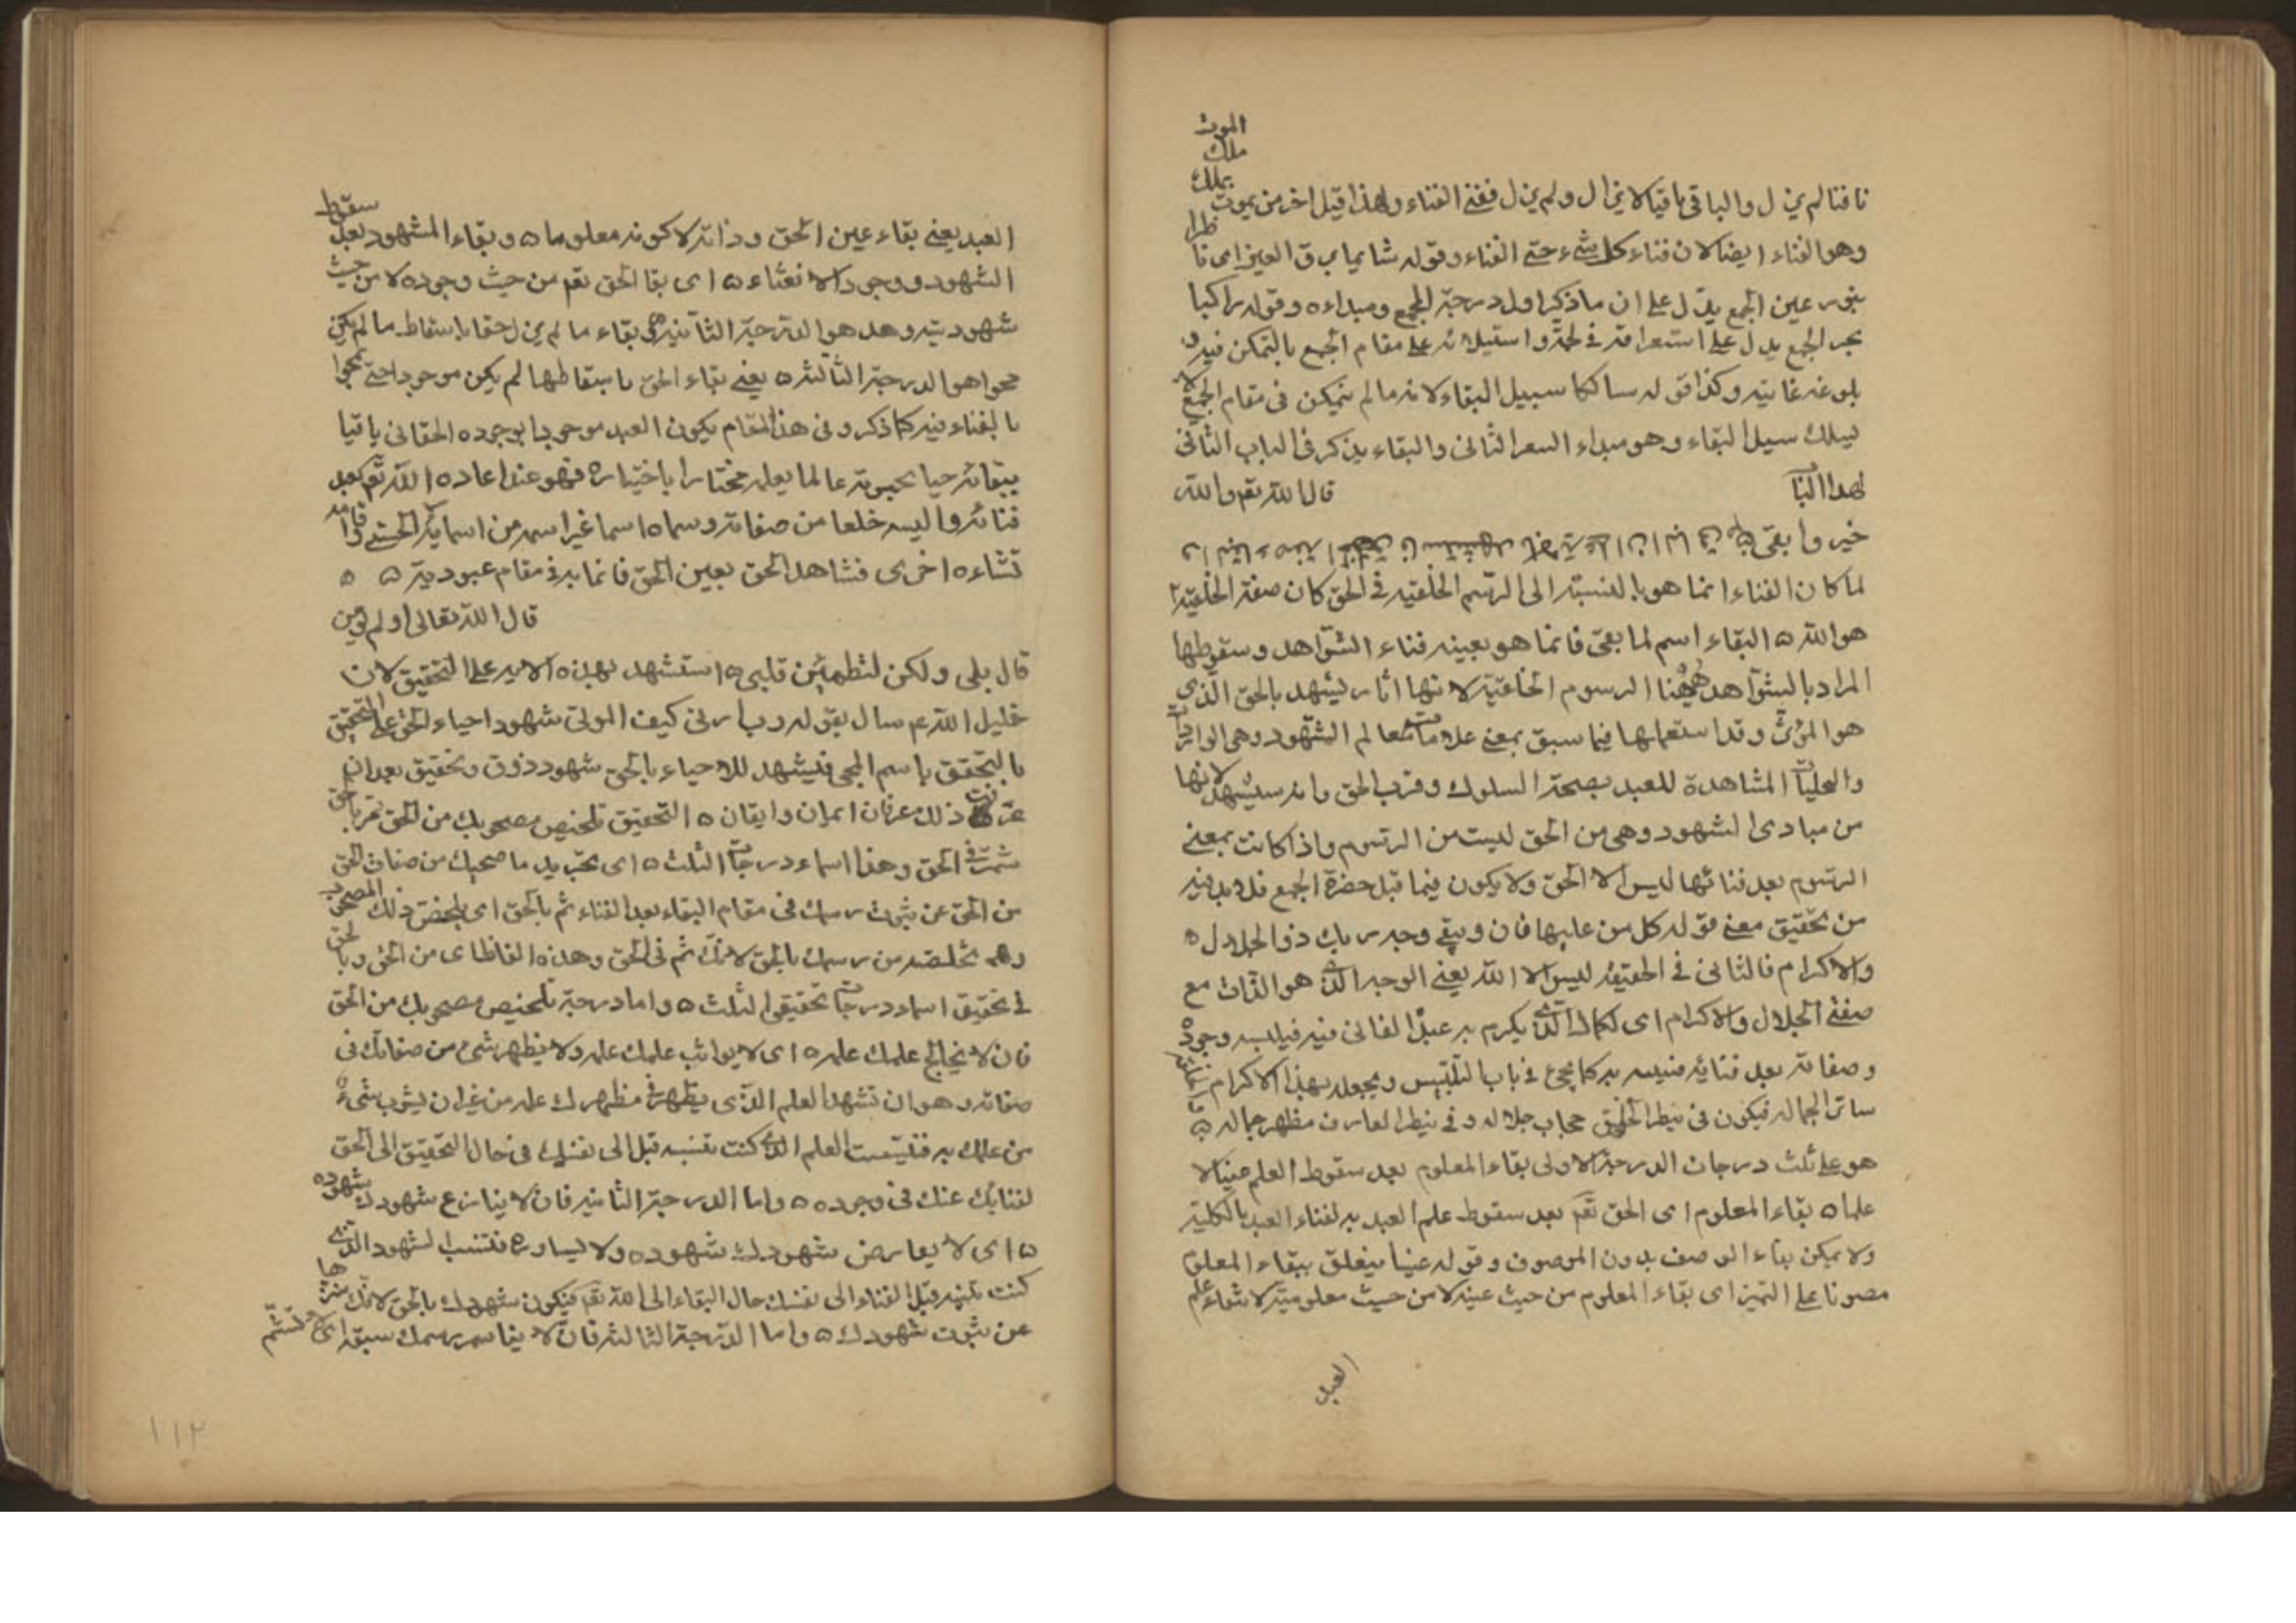 الموت
ملك
بملك
نافنا لم يزل والباقى باقيا لا يزال ولم يزل ففنى الفناء ولهذا قيل اخر من يموت
وهو الفناء ايضا لان فناء كل شىء حتى الفناء وقوله شايما برق العين اى نا
بنور عين الجمع يدل على ان ما ذكر اول درجة الجمع ومبداءه وقوله راكبا
بحر الجمع يدل على استغراقه فى لجته واستيلائه على مقام الجمع بالتمكن فيه و
بلوغه غايته وكذا قوله سالكا سبيل البقاء لانه ما لم يتمكن فى مقام الجمع لا
يسلك سبيل البقاء وهو مبداء السفر الثانى والبقاء يذكر فى الباب الثانى
لهذا البا قال الله تعم والله
خير وابقى
لما كان الفناء انما هو بالنسبة الى الرسم الخلقية فى الحق كان صفة الخلقية
هو الله ه البقاء اسم لما بقى فانما هو بعينه فناء الشواهد وسقوطها
المراد بالشواهد ههنا الرسوم الخلقية لانها اثار ليشهد بالحق الذى
هو المؤثر وقد استعملها فيما سبق بمعنى علامات معالم الشهود وهى الواردات
والتجليات المشاهدة للعبد بصحة السلوك وقرب الحق وانه سيشهد لانها
من مبادى الشهود وهى من الحق ليست من الرسوم واذا كانت بمعنى
الرسوم بعد فنائها ليس الا الحق ولا يكون فيما قبل حضرة الجمع فلا بد فيه
من تحقيق معنى قوله كل من عليها فان ويبقى وجه ربك ذو الجلال ه
والاكرام فالثانى فى الحقيقة ليس الا الله يعنى الوجه الذى هو الذات مع
صفتى الجلال والاكرام اى لكماله الذى يكرم به عبده الفانى فيه فيلبسه وجوده
وصفاته بعد فنائه فيه به كما يجئ فى باب التلبيس ويجعله بهذا الاكرام
ساتر الجماله فيكون فى نظر الخلق حجاب جلاله وفى نظر العارف مظهر جماله ه
هو على ثلث درجات الدرجة الاولى بقاء المعلوم بعد سقوط العلم عينا لا
علما ه بقاء المعلوم اى الحق تعم بعد سقوط علم العبد به لفناء العبد بالكلية
ولا يمكن بقاء الوصف بدون الموصوف وقوله عينا يتعلق ببقاء المعلوم
مصونا على التميز اى بقاء المعلوم من حيث عينه لا من حيث معلوميته لانتفاء علم
العبد
العبد يعنى بقاء عين الحق وذاته لا كونه معلوما ه وبقاء المشهود بعد سقوط
الشهود ووجود الا نعتاء ه اى بقا الحق تعم من حيث وجوده لا من حيث
شهوديته وهذه هو الدرجة الثانية ه وبقاء ما لم يزل حقا باسقاط ما لم يكن
محوا هو الدرجة الثالثة ه يعنى بقاء الحق باسقاطها لم يكن موجودا حتى يمحوا
بالفناء فيه كما ذكر وفى هذا المقام يكون العبد موجودا بوجوده الحقانى باقيا
ببقائه حيا بحيوته عالما بعلمه مختارا باختياره فهو عند اعاده الله تعم بعد
فنائه والبسه خلعا من صفاته وسماه اسما غير اسمه من اسمائه الحسنى واقامه
نشاءه اخرى فشاهد الحق بعين الحق قائما به فى مقام عبوديته ه ه
قال الله تعالى اولم تؤمن
قال بلى ولكن ليطمئن قلبى ه استشهد بهذه الاية على التحقيق لان
خليل الله عم سال بقوله رب ارنى كيف تحيى الموتى شهود احياء الحق على التحقيق
بالتحقق باسم المحى فيشهد للاحياء بالحق شهود ذوق وتحقيق بعد ان
عرف ذلك عرفان ايمان وايقان ه التحقيق تلخيص مصحوبك من الحق ثم بالحق
ثم فى الحق وهذا اسماء درجات الثلث ه اى تجريد ما صحبك من صفات الحق
من الحق عن ثبوت رسمك فى مقام البقاء بعد الفناء ثم بالحق اى تلخيص ذلك المصحوب
وهو تخلصه من رسمك بالحق لانك ثم فى الحق وهذه الفاظ اى من الحق وبالحق
فى تحقيق اسماء درجات تحقيق الثلث ه واما درجة تلخيص مصحوبك من الحق
فان لا يخالج علمك علمه ه اى لا يوائب علمك علمه ولا يظهر شىء من صفاتك فى
صفاته وهو ان تشهد العلم الذى يظهر فى مظهرك علمه من غير ان يشوب شىء
من علمك به فينسب العلم الذى كنت تنسبه قبل الى نفسك فى حال التحقيق الى الحق
لفنائك عنك فى وجوده ه واما الدرجة الثانية فان لا ينازع شهودك شهوده
ه اى لا يعارض شهودك شهوده ولا يساوره فتنسب الشهود الذى
كنت تنسبه قبل الفناء الى نفسك حال البقاء الى الله تعم فيكون شهودك بالحق لانك
عن ثبوت شهودك ه واما الدرجة الثالثة فان لا يناسم رسمك سبقه اى
١١٢